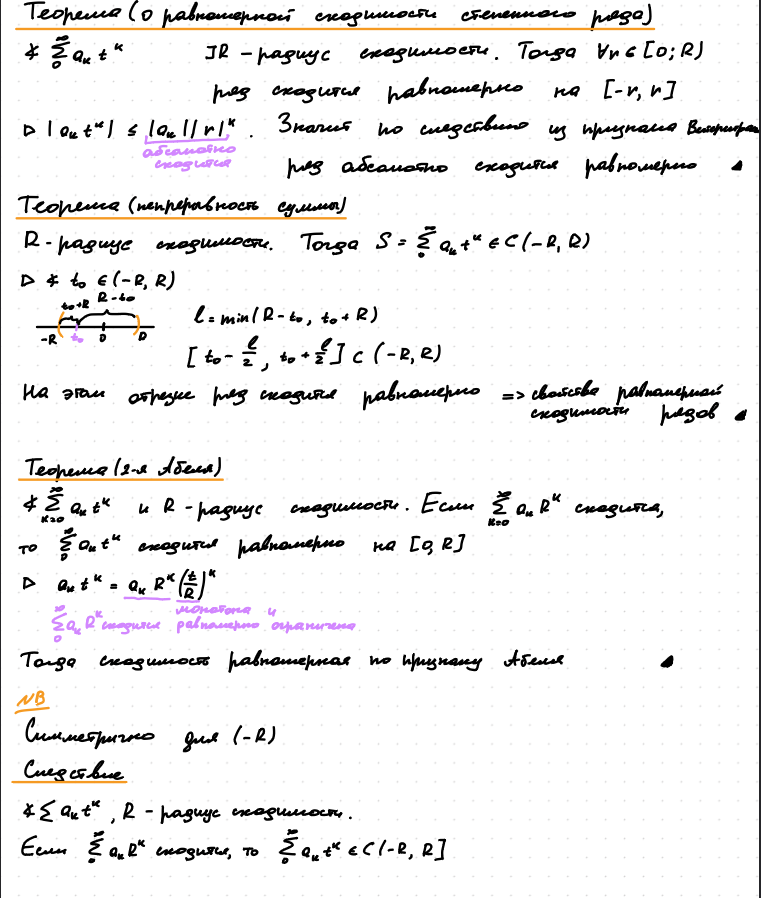 Теорема (о равномерной сходимости степенного ряда)
∢ ∑₀^∞ aₖ tᵏ ∃R – радиус сходимости. Тогда ∀r ∈ [0; R)
ряд сходится равномерно на [-r, r]
▷ |aₖ tᵏ| ≤ |aₖ| |r|ᵏ. Значит по следствию из признака Вейерштрасса
абсолютно
сходится
ряд абсолютно сходится равномерно
Теорема (непрерывность суммы)
R - радиус сходимости. Тогда S = ∑₀^∞ aₖ tᵏ ∈ C(-R, R)
▷ ∢ t₀ ∈ (-R, R)
t₀+R R-t₀
l = min(R - t₀, t₀ + R)
-R t₀ 0 R
[t₀ - l/2, t₀ + l/2] ⊂ (-R, R)
На этом отрезке ряд сходится равномерно => свойства равномерной
сходимости рядов
Теорема (2-я Абеля)
∢ ∑ₖ₌₀^∞ aₖ tᵏ и R - радиус сходимости. Если ∑ₖ₌₀^∞ aₖ Rᵏ сходится,
то ∑₀^∞ aₖ tᵏ сходится равномерно на [0, R]
▷ aₖ tᵏ = aₖ Rᵏ (t/R)ᵏ
монотонна и
∑₀^∞ aₖ Rᵏ сходится равномерно ограничена
Тогда сходимость равномерная по признаку Абеля
NB
Симметрично для (-R)
Следствие
∢ ∑ aₖ tᵏ, R - радиус сходимости.
Если ∑₀^∞ aₖ Rᵏ сходится, то ∑₀^∞ aₖ tᵏ ∈ C(-R, R]